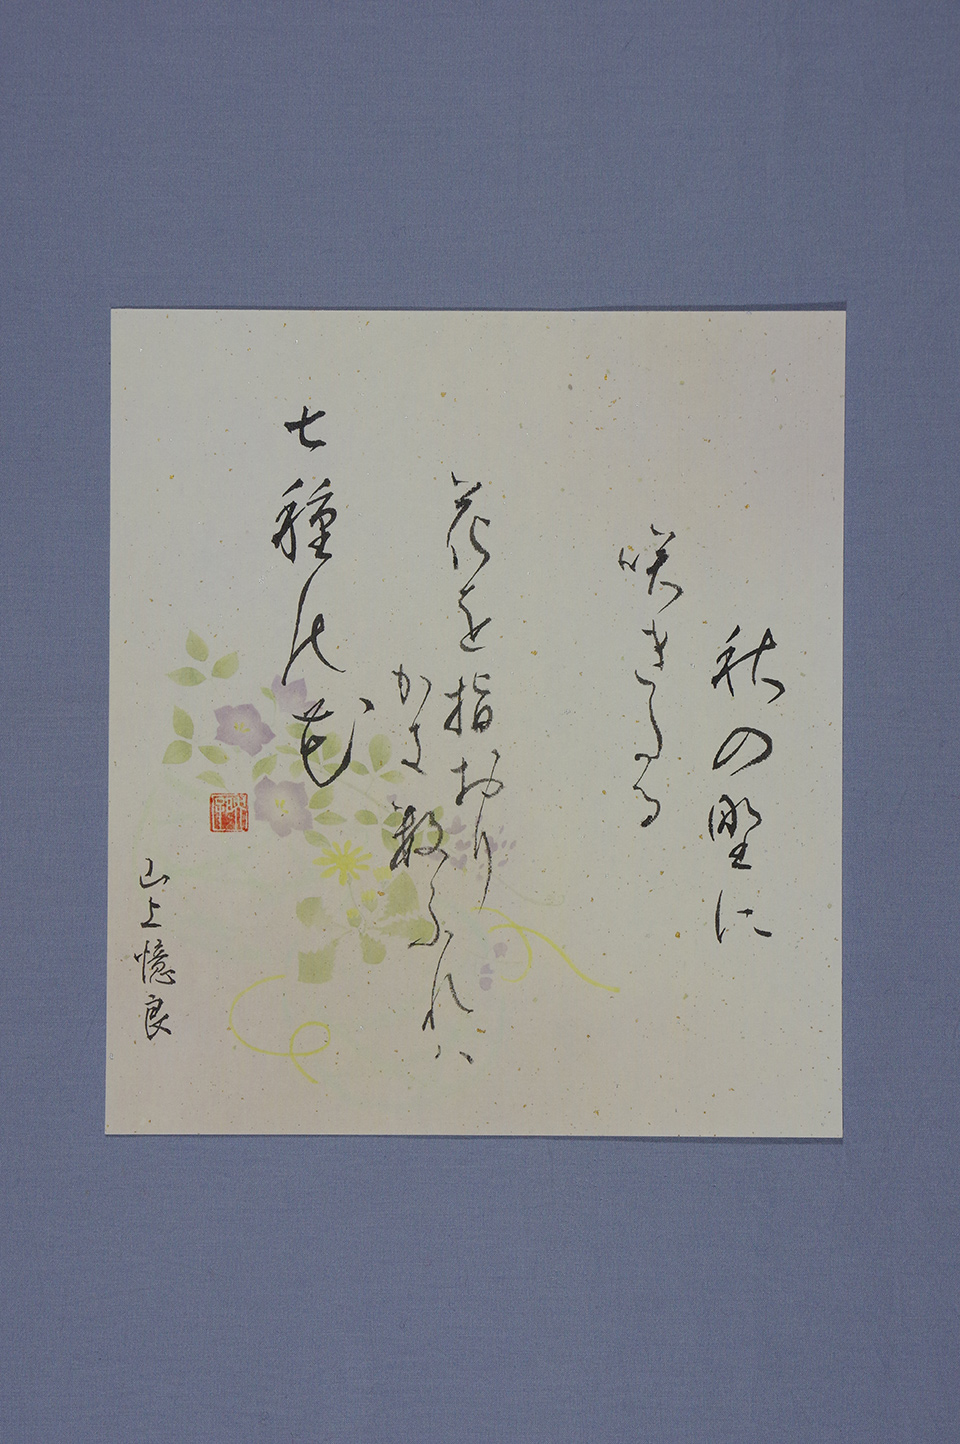 秋の野に
咲きたる
花を指おり
かき数ふれハ
七種の花
山上憶良